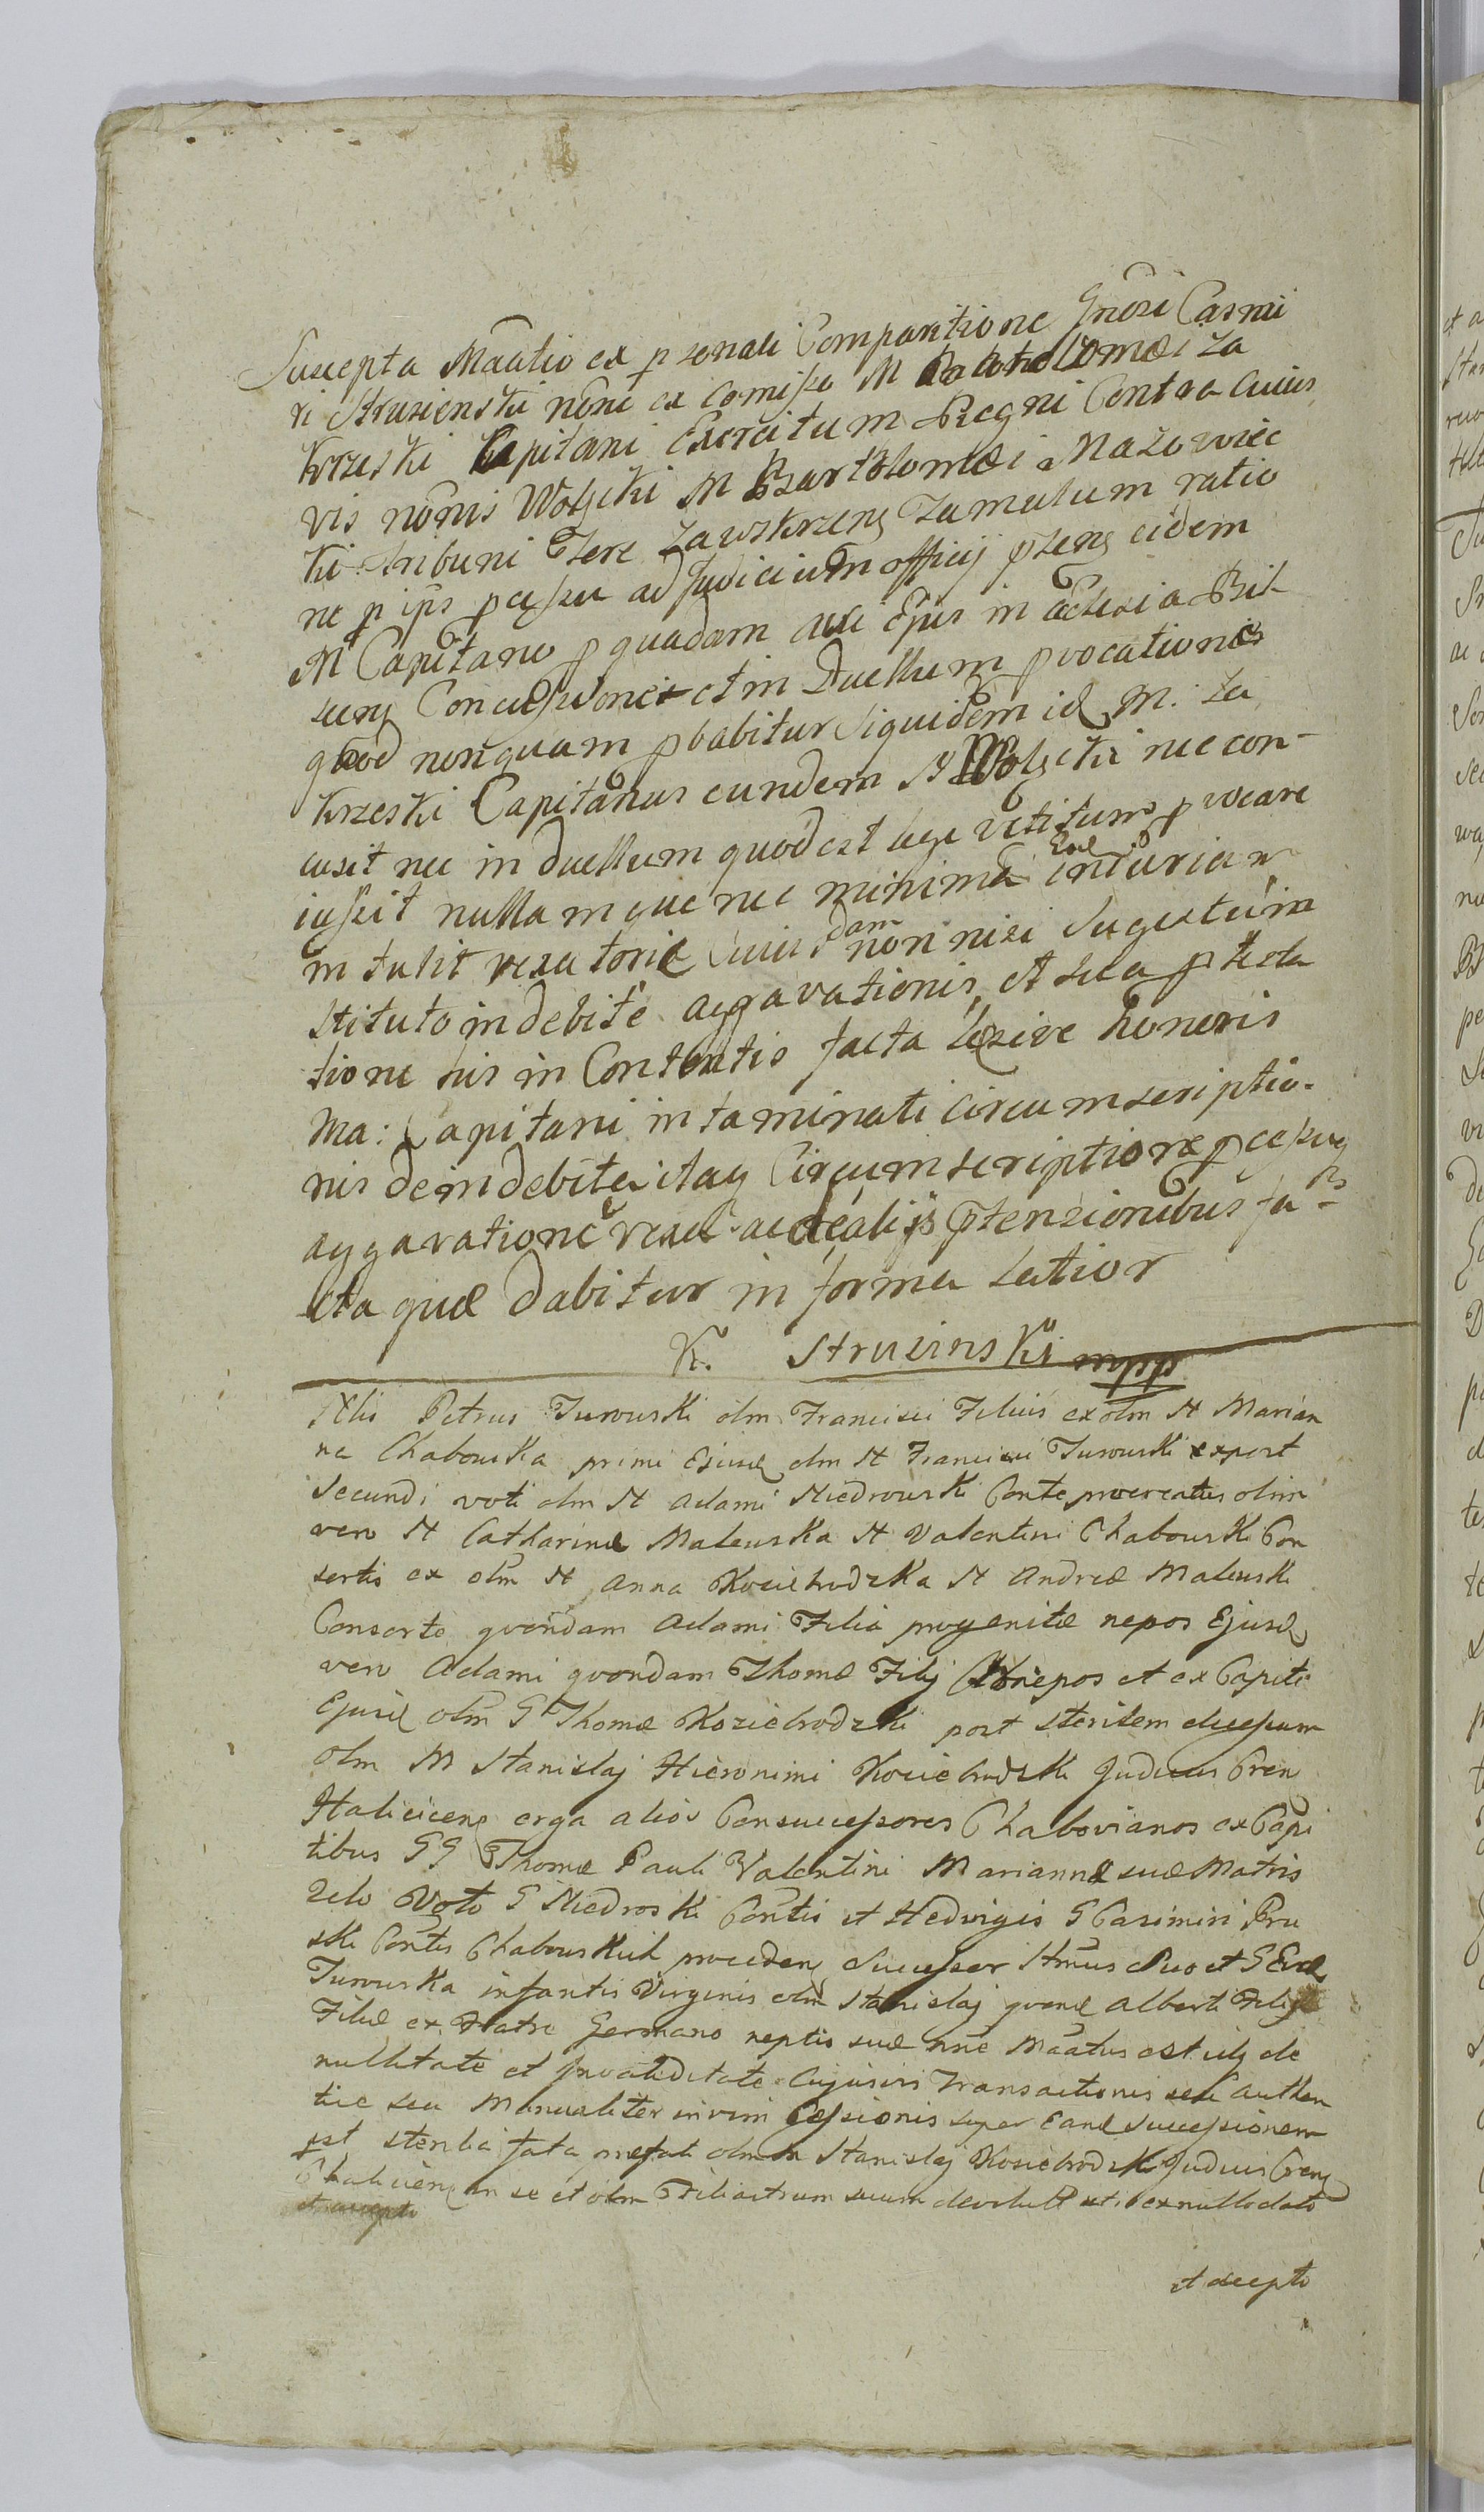 Suscepta Maatio ex psonali Comparitione Gnosi Casmi
ri Strusienski noñe ex comisso M Bartolomæi Za
krzeski Capitani Exercitum Regni Contra cuius
vis noñis Wolscki M Bartolomæi Mazowiec
ki Tribuni Tere Zawskrzens Zamatum ratio
ne p ips pcessu ad Judicium officij pzens eidem
M Capitano p quadam acsi Epis in Eclesia Biel
suns Concussione et in Duellum pvocationes
quod nonquam pbabitur Siquidem id M. Za
krzeski Capitanus eundem N Wolscki nec con-
cusit nec in duellum quod est lege vetitum pvocare
iussit nullamque nec minima Eae iniuriam
intulit vexatoriæ Cuius dam non nisi Sugestu in
stituto indebite aggravationis et sua ptesta
tione his in Contentis facta læsive honoris
Ma: Capitani intaminati circumscriptio-
nis de indebita itaq Circumscriptione pcessus
aggravatione vexae ac dealijs ptensionibus fa-
cta quæ dabitur in forma Latior
K. Strusinski mpp
Nlis Petrus Turowski olm Francisci Filius ex olm N Marian
na Chabowska primi Ejusd olm N Francisci Turowski ex post
Secundi voti olm N Adami Niedrowski Conte procreatus olim
vero N Catharinæ Malewska N Valentini Chabowski Con
sortis ex olm N Anna Koziebrodzka N Andreæ Malewski
Consorte quondam Adami Filia progenitæ nepos Ejusd
vero Adami quondam Thomæ Filij Abnepos et ex Capite
Ejusd olm G Thomæ Koziebrodzki post sterilem decessum
olm M Stanislaj Hieronimi Koziebrodzki Judicis Cren
Haliciens erga alios Consuccessores Chabovianos ex Capi
tibus GG Thomæ Pauli Valentini Mariannæ suæ Matris
2do Voto G Niedroski Contis et Hedvigis G Casimiri Pru
ski Contis Chabowskich proceden Successor Itmus Suo et G Evæ
Turowska infantis Virginis olm Stanislaj quond Alberti Filij
Filiæ ex Fratre Germano neptis suæ nne Maatus est idq de
nullitate et Invaliditate Cujusvis Transactionis seu authen
tice seu Manualiter in vim Cessionis super Eand Successionem
pst sterilia fata præfati olm M Stanislaj Koziebrodzki Judicis Crens
Haliciens in se et olm Filiastrum suum devoluti uti ex nullo dato
et accepto
et accepto